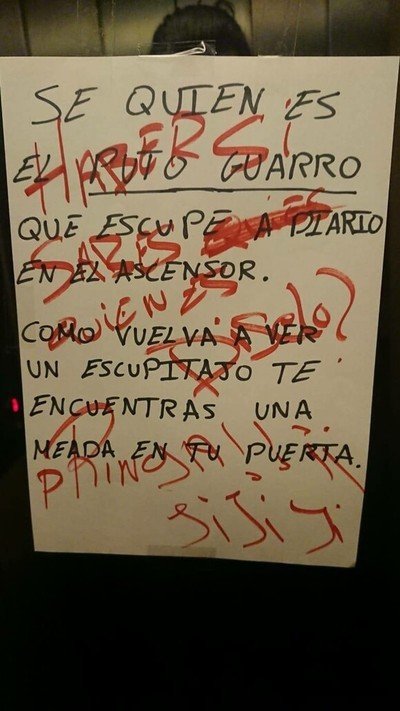 SE QUIEN ES
EL PUTO GUARRO
QUE ESCUPE A DIARIO
EN EL ASCENSOR.
COMO VUELVA A VER
UN ESCUPITAJO TE
ENCUENTRAS UNA
MEADA EN TU PUERTA.
HABER Si
SABES
QUIEN ES
JiJi Ji